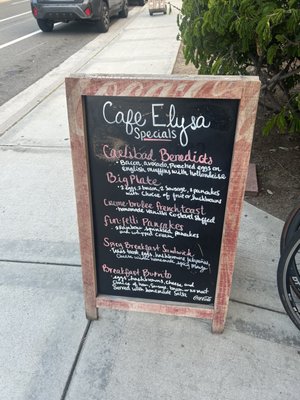 Cafe Elysa
Specials
Carlsbad Benedicts
• Bacon, avocado, Poached eggs on
english muffins with hollandaise
Big Plate
• 2 eggs, 2 bacon, 2 Sausage, 2 pancakes
with Choice of fruit or hashbrowns
Creme-brulee French toast
• homemade Vanilla Custard Stuffed
Funfetti Pancakes
• Rainbow Sprinkled Pancakes
and whipped Cream
Spicy Breakfast Sandwich
eggs, hashbrowns, jalapeños,
Cheese with homemade spicy mayo
Breakfast Burrito
• eggs, hashbrowns, cheese, and
Choice of ham, Sausage, bacon or no meat
Served with homemade Salsa
Coca-Cola